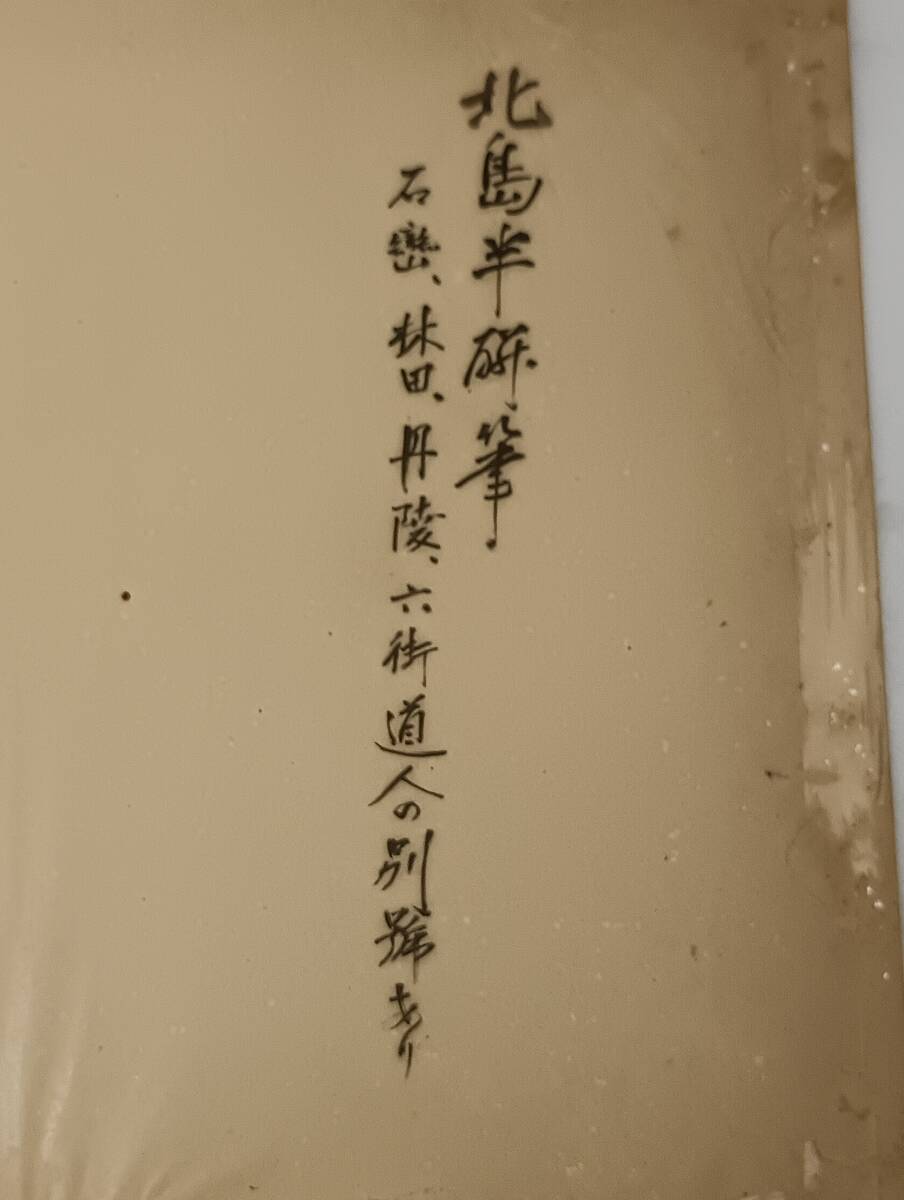 北島半硏筆.
石巒、林田、丹陵、六街道人の別號あり